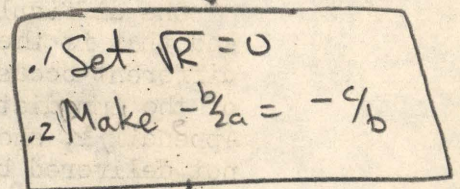 .1 Set √R = 0
.2 Make -b/2a = -c/b